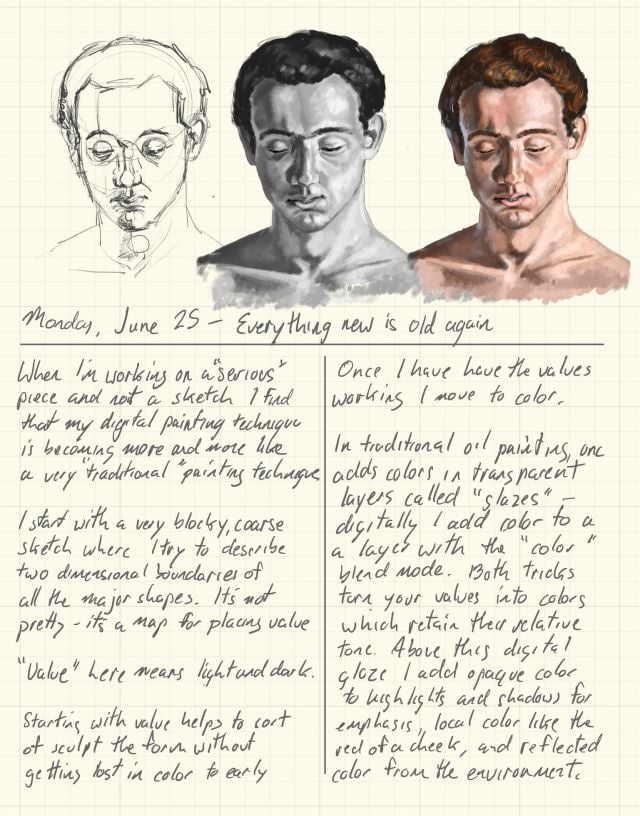 Monday, June 25 – Everything new is old again
When I'm working on a "serious"
piece and not a sketch I find
that my digital painting technique
is becoming more and more like
a very "traditional" painting technique
I start with a very blocky, coarse
sketch where I try to describe
two dimensional boundaries of
all the major shapes. It's not
pretty – it's a map for placing value
"Value" here means light and dark.
Starting with value helps to sort
of sculpt the form without
getting lost in color to early
Once I have have the values
working I move to color.
In traditional oil painting, one
adds colors in transparent
layers called "glazes" –
digitally I add color to a
a layer with the "color"
blend mode. Both tricks
turn your values into colors
which retain their relative
tone. Above this digital
glaze I add opaque color
to highlights and shadows for
emphasis, local color like the
red of a cheek, and reflected
color from the environment.